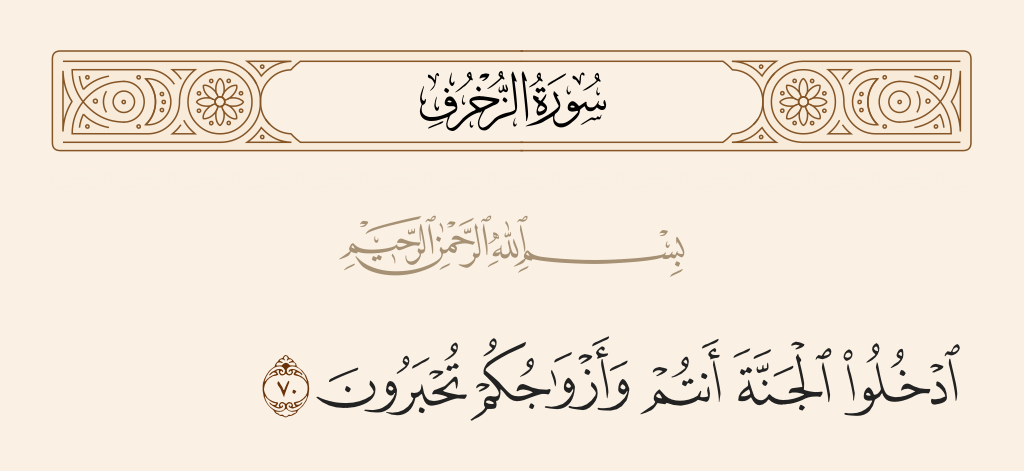 سُورَةُ الزُّخْرُفِ
بِسْمِ ٱللَّهِ ٱلرَّحْمَٰنِ ٱلرَّحِيمِ
ٱدْخُلُوا۟ ٱلْجَنَّةَ أَنتُمْ وَأَزْوَٰجُكُمْ تُحْبَرُونَ ٧٠